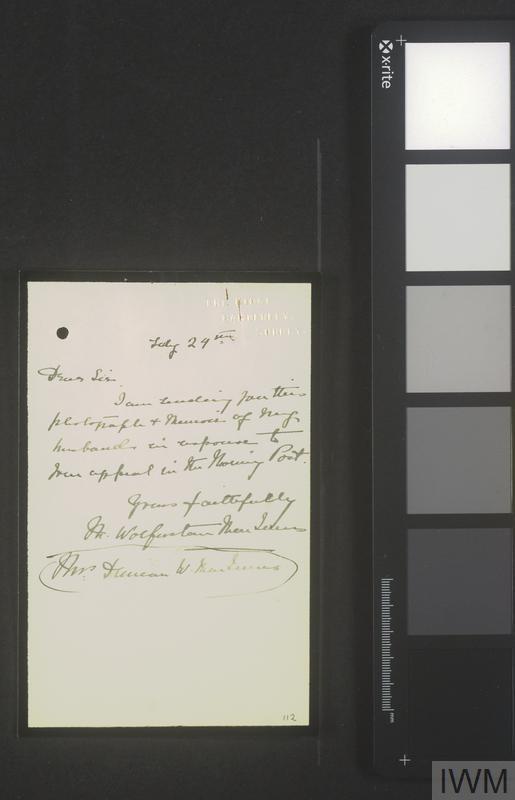 THE RIDGE
CAMBERLEY,
SURREY.
July 29th
Dear Sir,
I am sending you this
photograph & Memoir of my
husbands in response to
your appeal in the Morning Post.
Yours faithfully
M. Wolferstan MacInnes
Mrs Duncan W. MacInnes
112
x-rite
mm
IWM